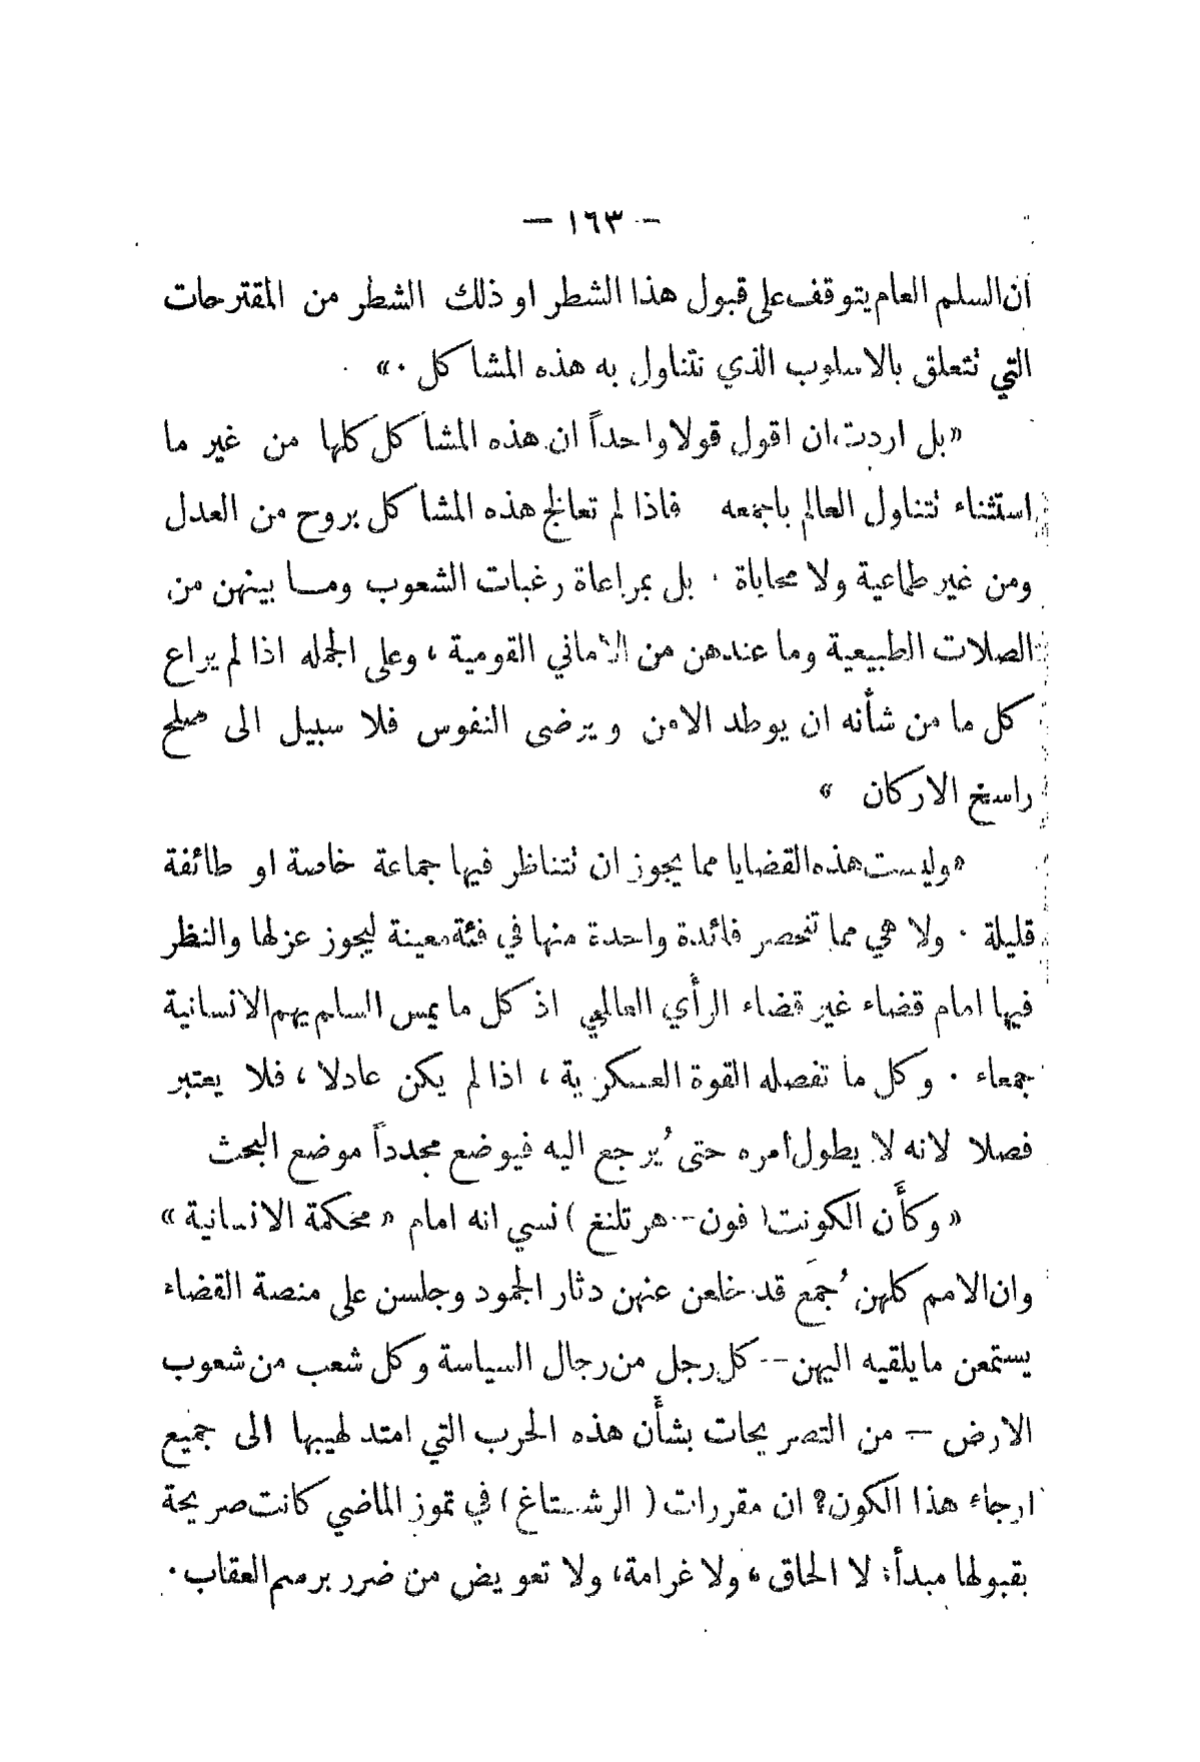 — ١٦٣ —
ان السلم العام يتوقف على قبول هذا الشطر او ذلك الشطر من المقترحات
التي تتعلق بالاسلوب الذي نتناول به هذه المشاكل ٠»
«بل اردت ان اقول قولا واحداً ان هذه المشاكل كلها من غير ما
استثناء تتناول العالم باجمعه فاذا لم تعالج هذه المشاكل بروح من العدل
ومن غير طماعية ولا محاباة ٠ بل بمراعاة رغبات الشعوب وما بينهن من
الصلات الطبيعية وما عندهن من الاماني القومية ، وعلى الجمله اذا لم يراع
كل ما من شأنه ان يوطد الامن ويرضى النفوس فلا سبيل الى صلح
راسخ الاركان »
«وليست هذه القضايا مما يجوز ان تتناظر فيها جماعة خاصة او طائفة
قليلة ٠ ولا هي مما تنحصر فائدة واحدة منها في فئة معينة ليجوز عزلها والنظر
فيها امام قضاء غير قضاء الرأي العالمي اذ كل ما يمس السلم يهم الانسانية
جمعاء ٠ وكل ما تفصله القوة العسكرية ، اذا لم يكن عادلا ، فلا يعتبر
فصلا لانه لا يطول أمره حتى يُرجع اليه فيوضع مجدداً موضع البحث
« وكأن الكونت ( فون--هرتلنغ ) نسي انه امام « محكمة الانسانية »
وان الامم كلهن جُمَع قد خلعن عنهن دثار الجمود وجلسن على منصة القضاء
يستمعن ما يلقيه اليهن -- كل رجل من رجال السياسة وكل شعب من شعوب
الارض — من التصريحات بشأن هذه الحرب التي امتد لهيبها الى جميع
ارجاء هذا الكون؟ ان مقررات ( الرشستاغ ) في تموز الماضي كانت صريحة
بقبولها مبدأ: لا الحاق ، ولا غرامة، ولا تعويض من ضرر برسم العقاب ٠